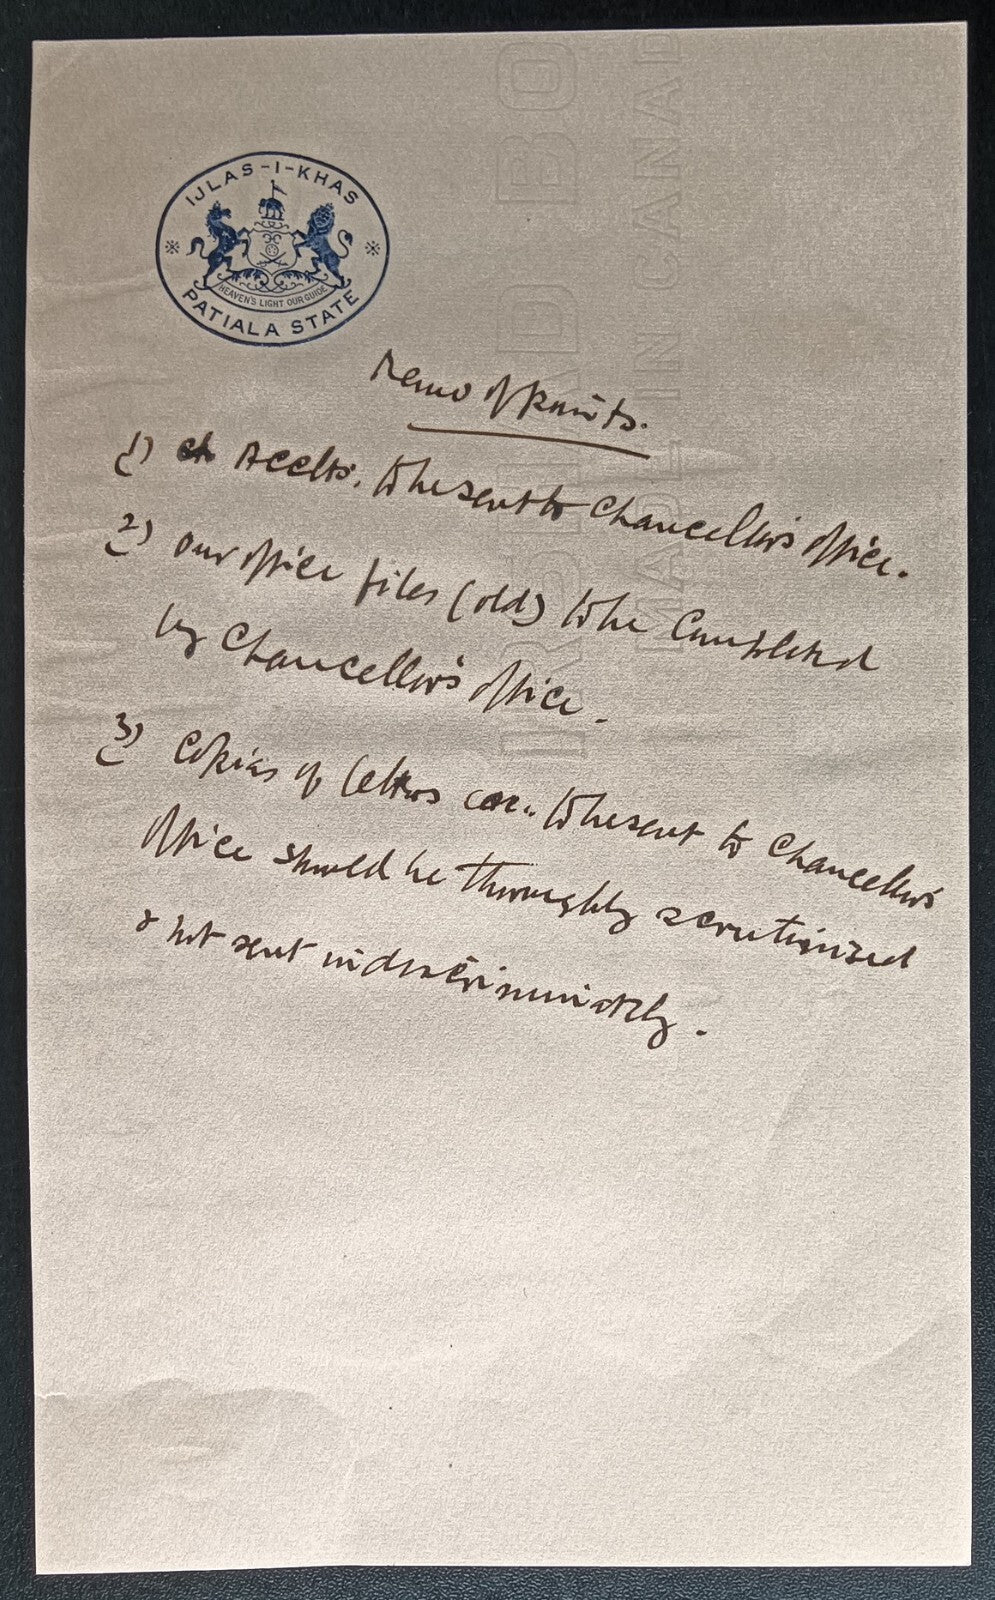 IJLAS-I-KHAS
HEAVEN'S LIGHT OUR GUIDE
PATIALA STATE
Memo of points.
1) Accts. to be sent to Chancellor's office.
2) our office files (old) to be Completed
by Chancellor's office.
3) Copies of letters to be sent to Chancellor's
office should be thoroughly scrutinized
& not sent indiscriminately.
MADE IN